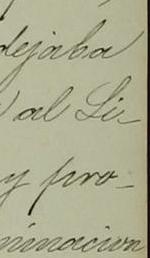 dejaba
al Li-
y pro-
minacion